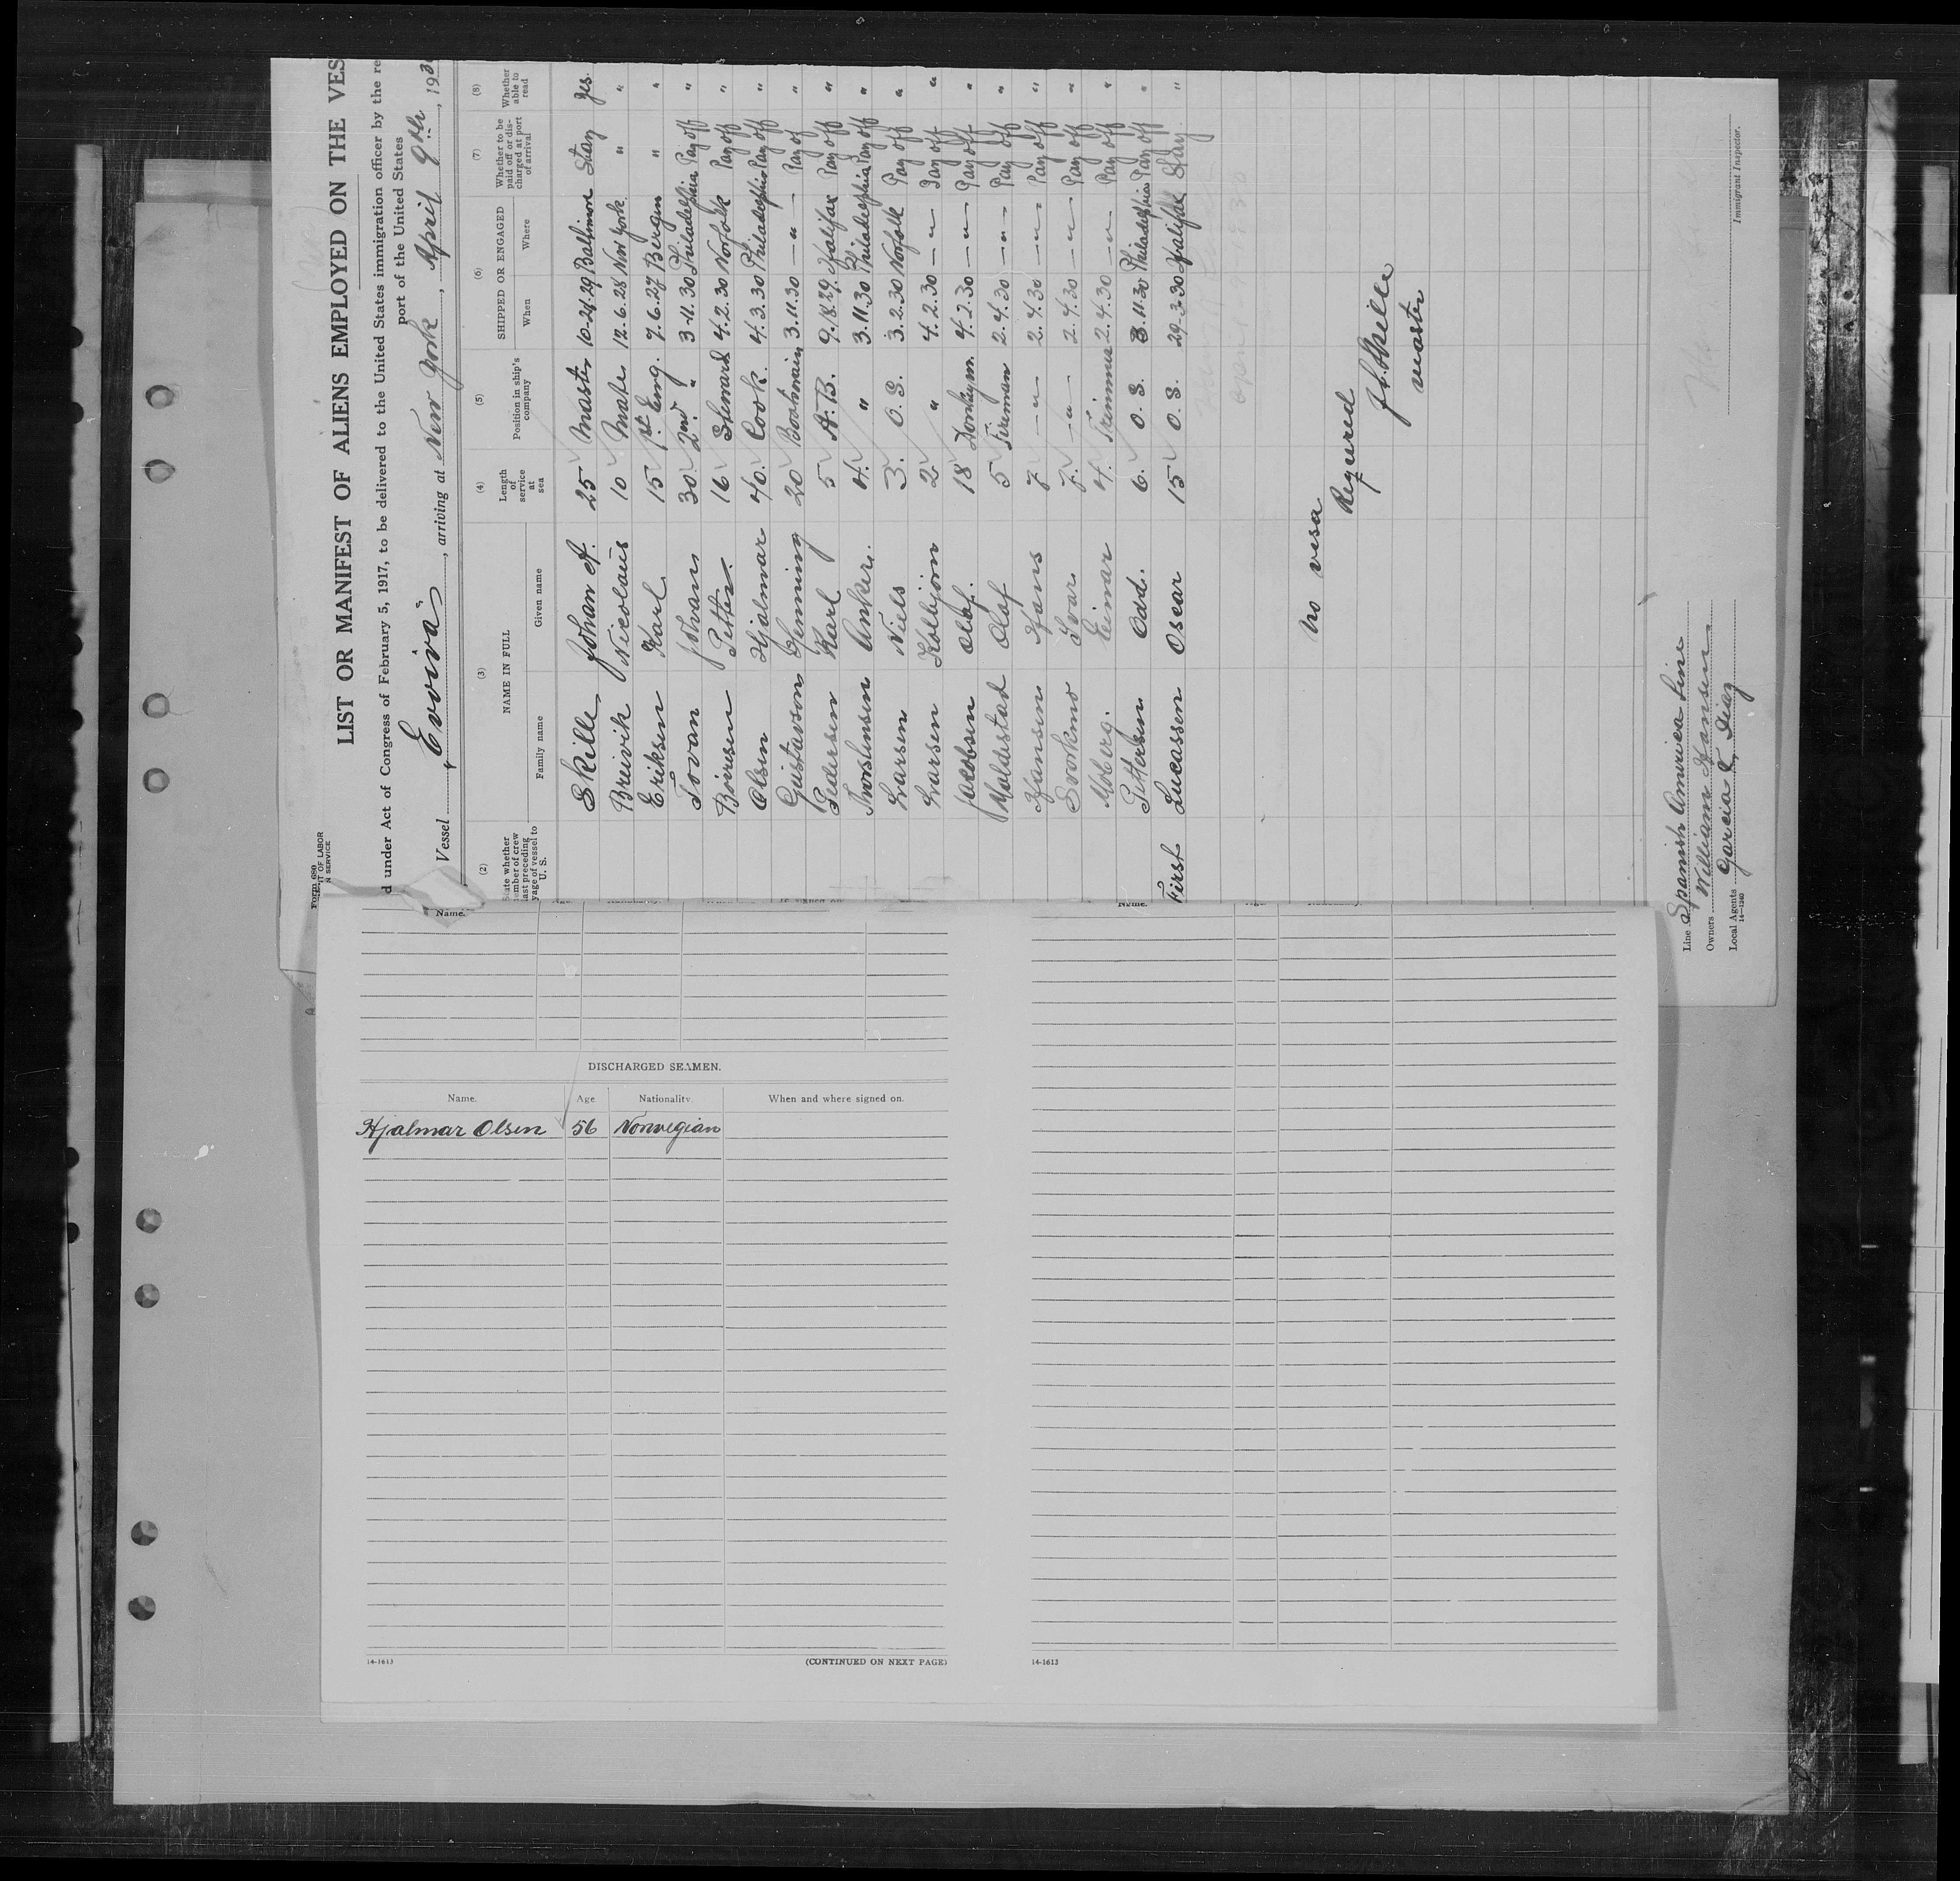 Form 689
T OF LABOR
N SERVICE
LIST OR MANIFEST OF ALIENS EMPLOYED ON THE VES
d under Act of Congress of February 5, 1917, to be delivered to the United States immigration officer by the re
port of the United States
Vessel "Evviva", arriving at New York, April 9th, 1930
(2) (3) (4) (5) (6) (7) (8)
State whether member of crew last preceding voyage of vessel to U. S. NAME IN FULL Length of service at sea Position in ship's company SHIPPED OR ENGAGED Whether to be paid off or discharged at port of arrival Whether able to read
Family name Given name When Where
Skille Johan A. 25 Master 10-24-29 Baltimore Stay yes.
Breivik Nicolaus 10 Mate 12.6.28 New York " "
Eriksen Karl 15 1st Eng. 7.6.27 Bergen " "
Tovan Johan 30 2nd " 3-11.30 Philadelphia Pay off "
Boiesen Petter. 16 Steward 4.2.30 Norfolk Pay off "
Olsen Hjalmar 40. Cook. 4.3.30 Philadelphia Pay off "
Gustavson Henning 20 Bootsmain 3.11.30 — " — Pay of "
Pedersen Karl 5 A.B. 9.18.29 Halifax Pay off "
Thorstensen Anker. 4. " 3.11.30 Philadelphia Pay off "
Larsen Niels 3. O.S. 3.2.30 Norfolk Pay off "
Larsen Kolbjorn 2 " 4.2.30 — " — Pay off "
Jacobsen Olaf. 18 Donkeym. 4.2.30 — " — Pay off "
Maldestad Olaf 5 Fireman 2.4.30 — " — Pay off "
Hansen Hans 7 — " — 2.4.30 — " — Pay off "
Svorkmo Ivar 7. — " — 2.4.30 — " — Pay off "
Moberg. Einar 4. Trimmer 2.4.30 — " — Pay off "
Pettersen Odd. 6. O.S. 3.11.30 Philadelphia Pay off "
First Lucassen Oscar 15 O.S. 29-3-30 Halifax Stay "
No visa
Required
J. A. Skille
master
Line Spanish America Line
Owners William Hansen
Local Agents Garcia & Diaz
14—1240
Immigrant Inspector.
Name.
Name.
DISCHARGED SEAMEN.
Name. Age. Nationality. When and where signed on.
Hjalmar Olsen 56 Norwegian
14-1613 (CONTINUED ON NEXT PAGE)
14-1613